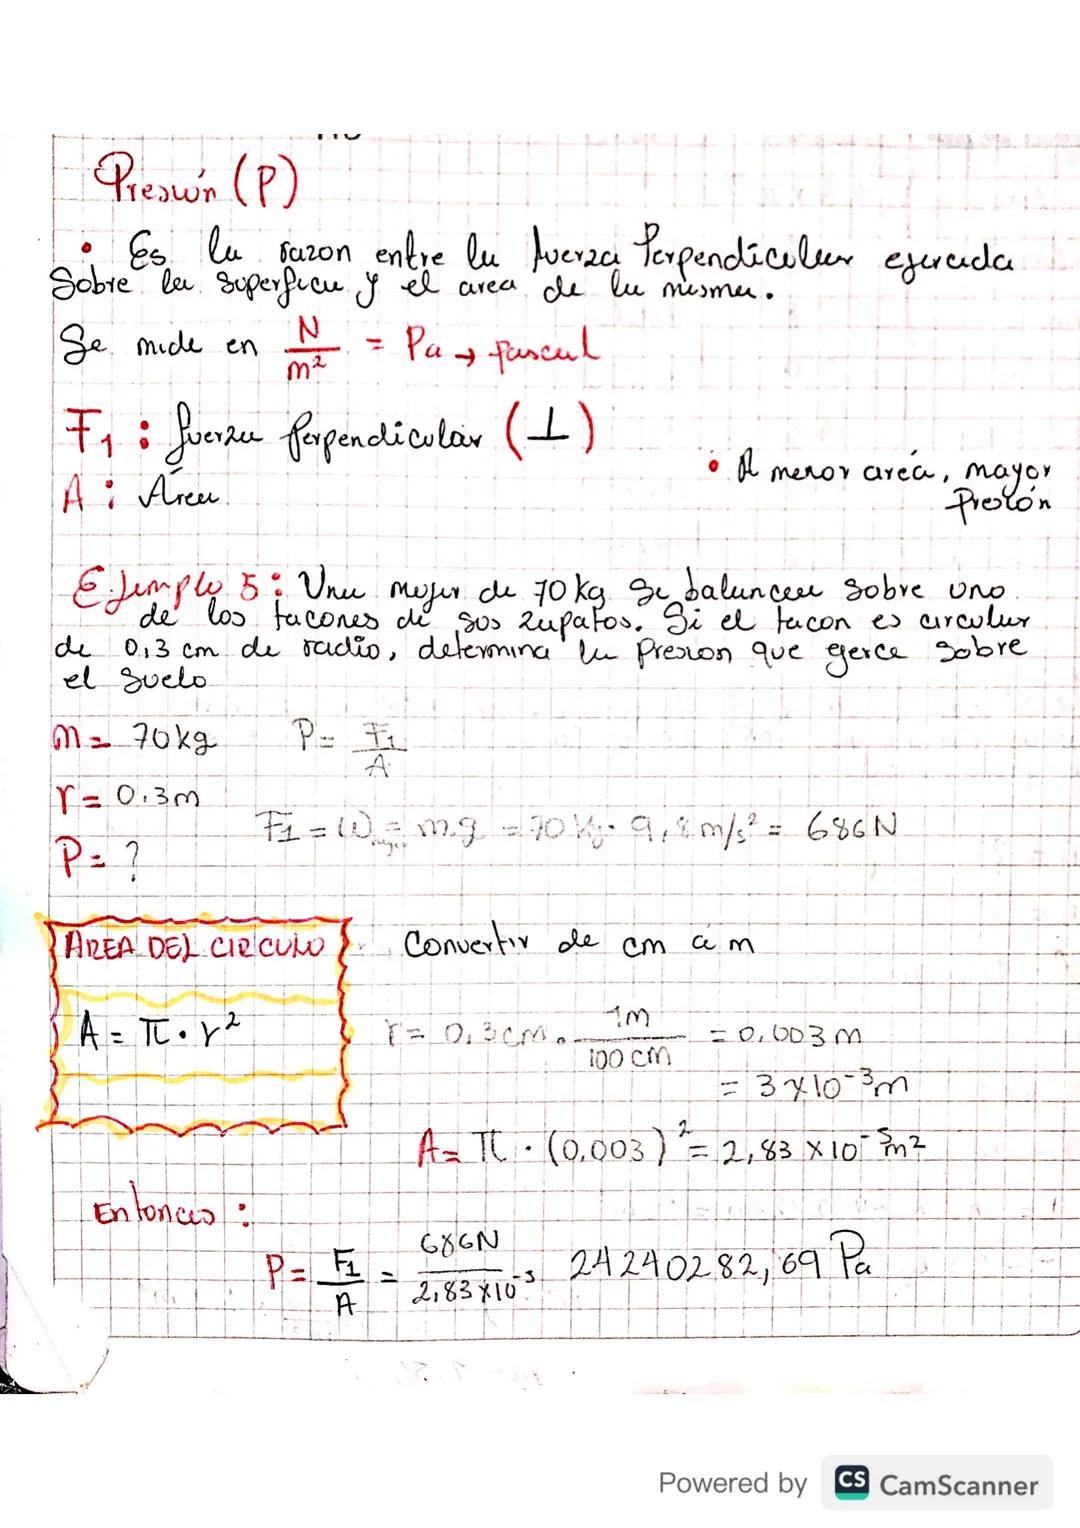 Presión (P)
• Es la razon entre la fuerza Perpendicular ejercida
Sobre la superficie y el area de la misma.
Se mide en N/m² = Pa → pascal
F₁ : fuerza perpendicular (⊥)
A : Área
• A menor area, mayor
Presión
Ejemplo 5: Una mujer de 70 kg se balancea sobre uno
de los tacones de sus zapatos. Si el tacon es circular
de 0,3 cm de radio, determina la Presion que ejerce sobre
el suelo
m = 70kg
P = F₁/A
r = 0.3m
F₁ = W mujer = m.g = 70 kg . 9,8 m/s² = 686N
P = ?
AREA DEL CIRCULO
A = π . r²
Convertir de cm a m
r = 0,3cm . 1m/100 cm = 0,003m
= 3x10⁻³m
A = π . (0,003)² = 2,83 x 10⁻⁵m²
Entonces :
P = F₁/A = 686N/2,83x10⁻⁵ 24240282,69 Pa
Powered by CS CamScanner